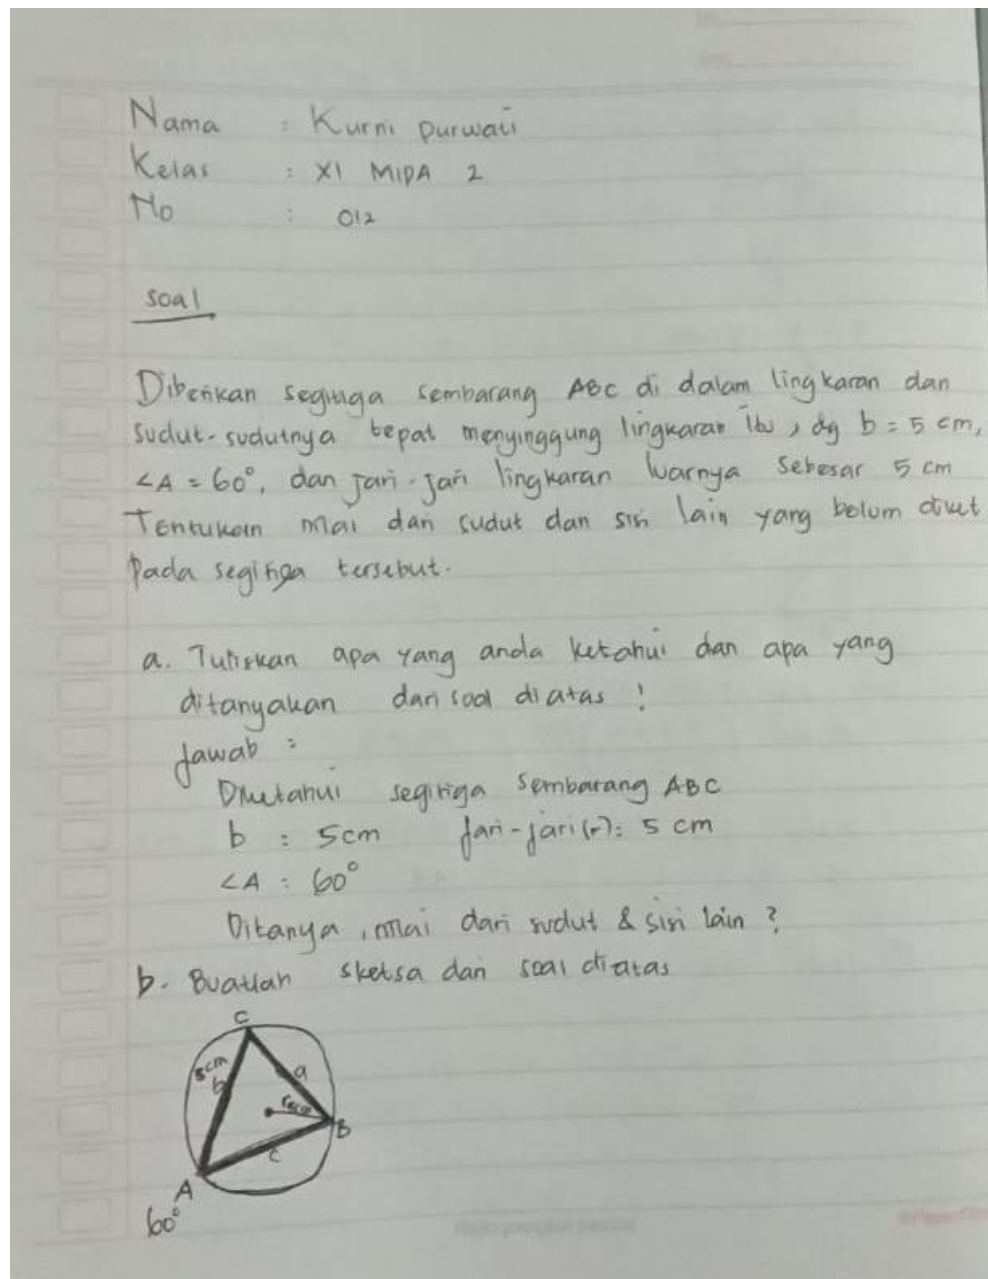 Nama : Kurni purwati
Kelas : XI MIPA 2
No : 012
soal
Diberikan segitiga sembarang ABC di dalam lingkaran dan
sudut-sudutnya tepat menyinggung lingkaran itu, dg b = 5 cm,
∠A = 60°, dan jari-jari lingkaran luarnya sebesar 5 cm
Tentukan nilai dari sudut dan sisi lain yang belum diket
pada segitiga tersebut.
a. Tuliskan apa yang anda ketahui dan apa yang
ditanyakan dari soal diatas !
Jawab :
Diketahui segitiga sembarang ABC
b = 5cm Jari-jari (r) = 5 cm
∠A = 60°
Ditanya, nilai dari sudut & sisi lain ?
b. Buatlah sketsa dari soal diatas
C
5cm
b
a
B
c
A
60°